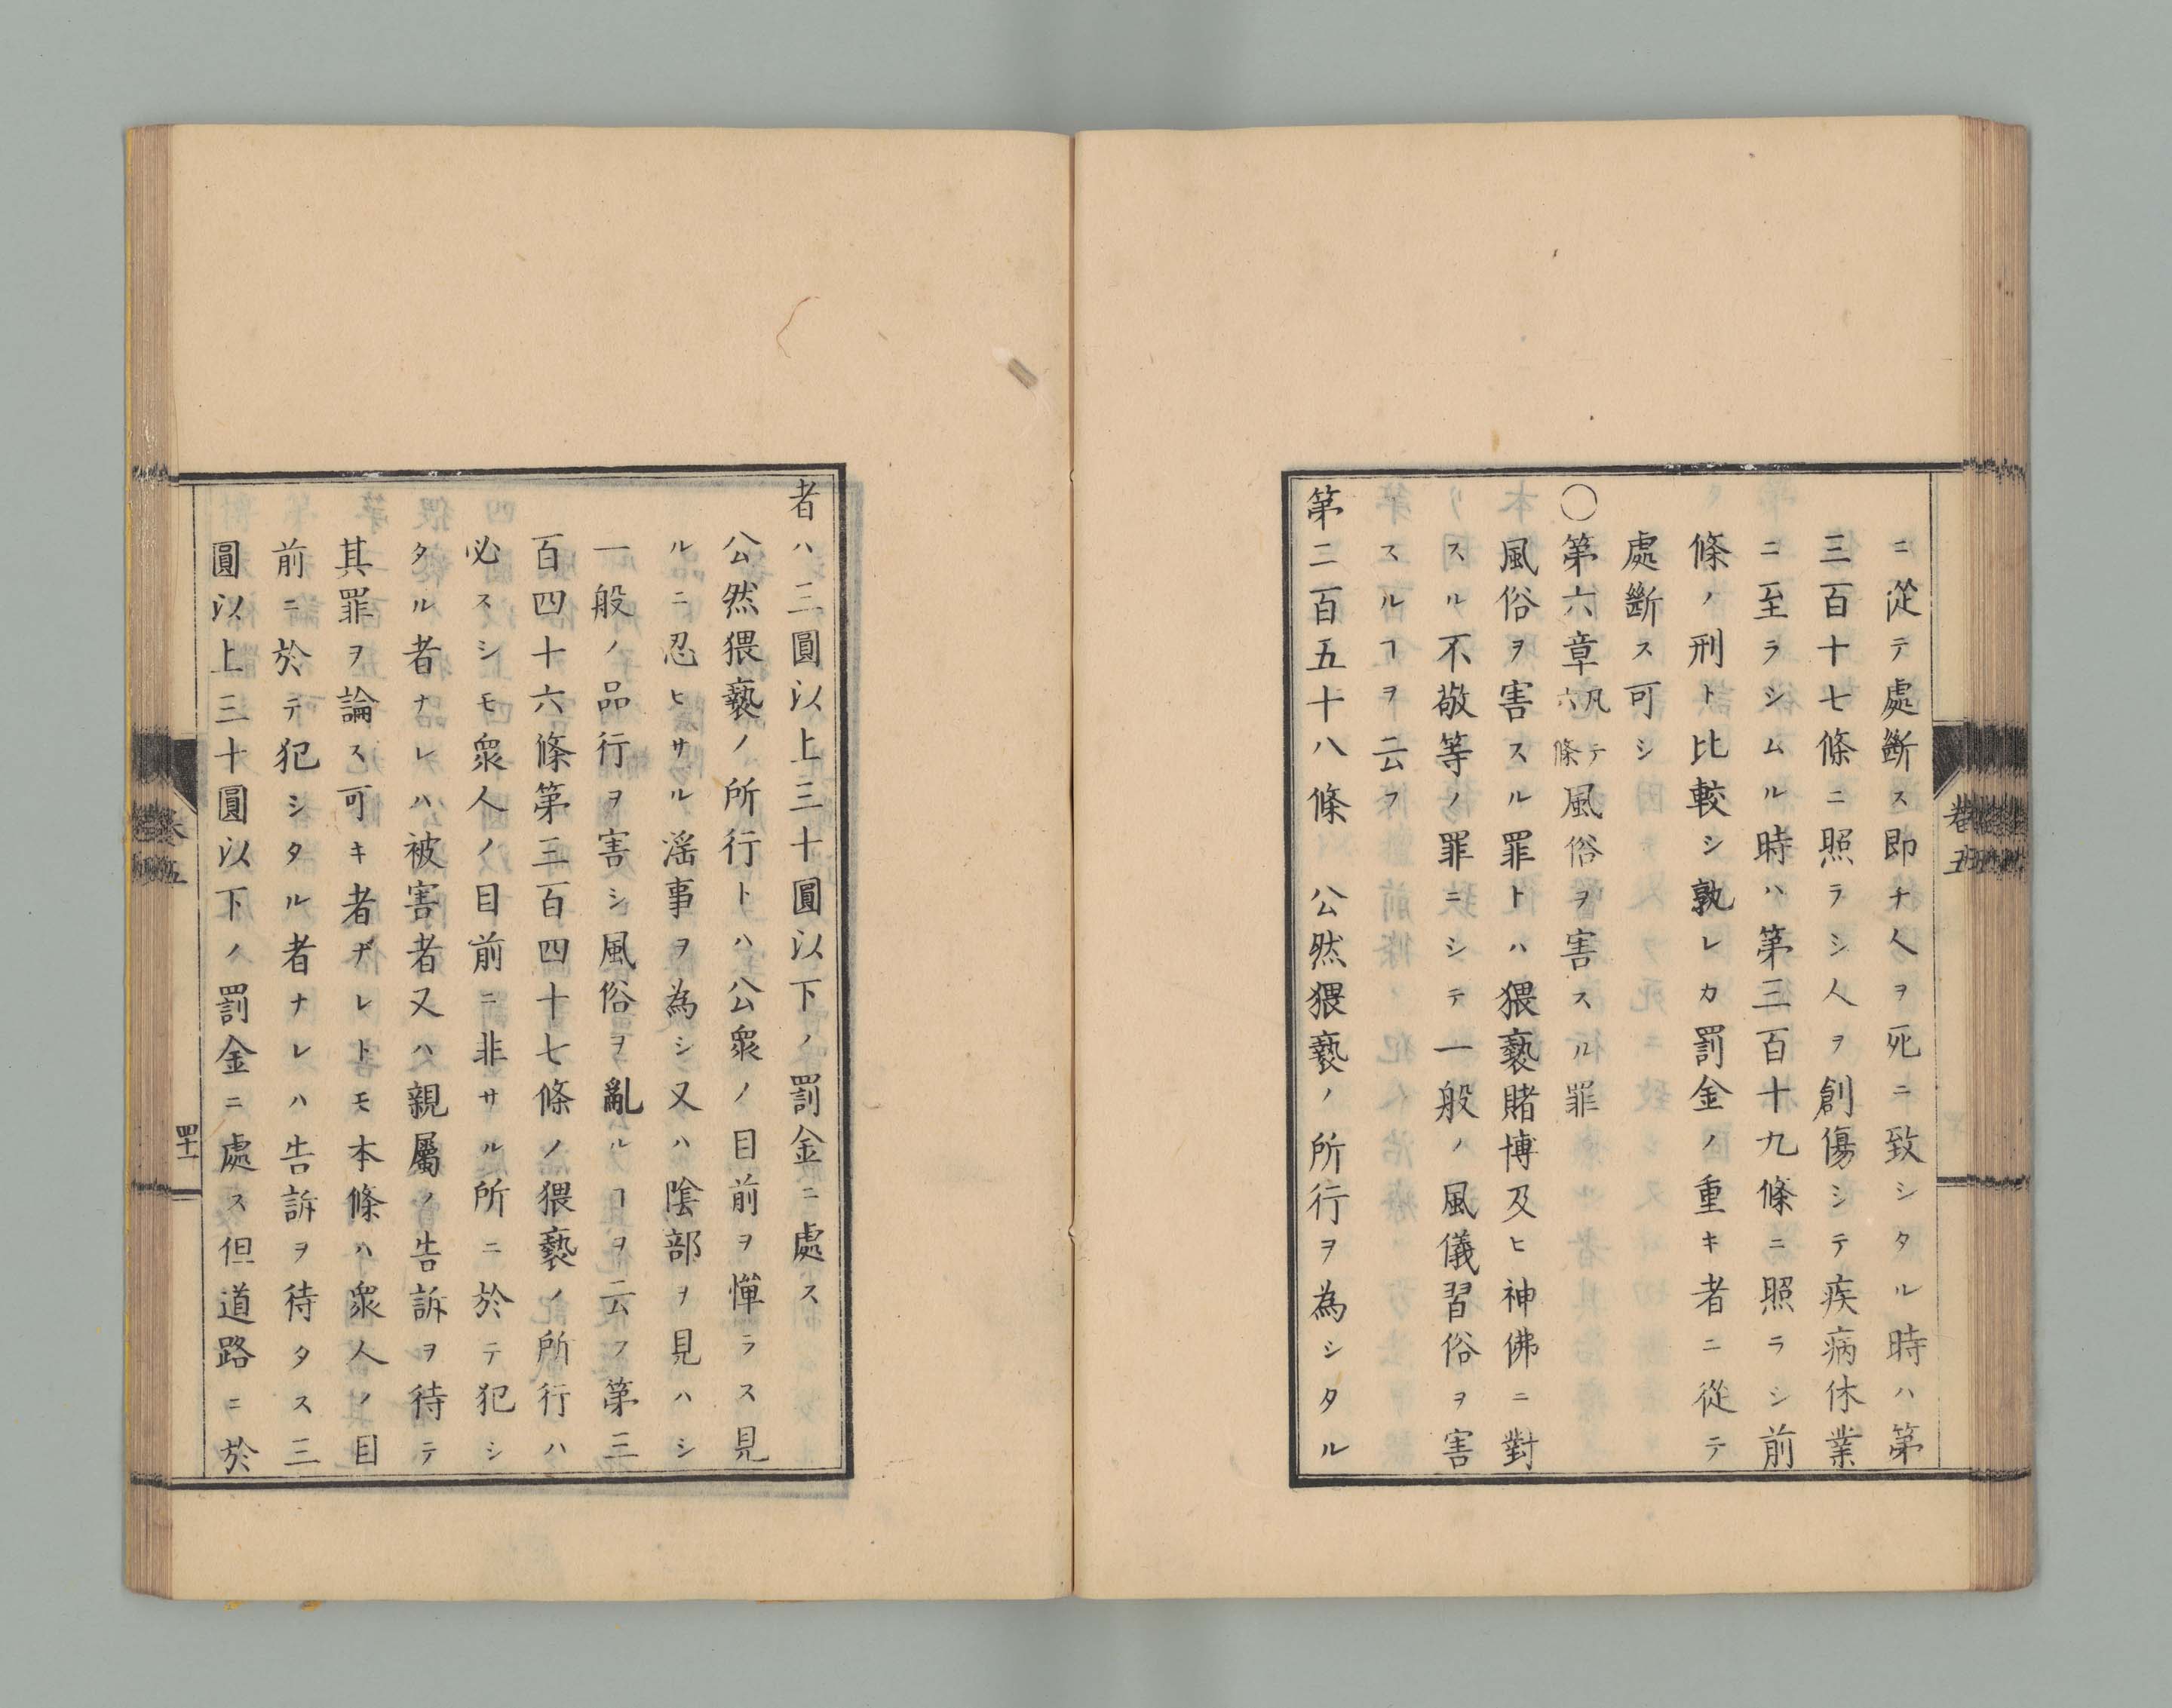 ニ從テ處斷ス即チ人ヲ死ニ致シタル時ハ第
三百十七條ニ照ラシ人ヲ創傷シテ疾病休業
ニ至ラシムル時ハ第三百十九條ニ照ラシ前
條ノ刑ト比較シ孰レカ罰金ノ重キ者ニ從テ
處斷ス可シ
〇第六章凡テ六條風俗ヲ害スル罪
風俗ヲ害スル罪トハ猥褻賭博及ヒ神佛ニ對
スル不敬等ノ罪ニシテ一般ノ風儀習俗ヲ害
スルヿヲ云フ
第二百五十八條 公然猥褻ノ所行ヲ為シタル
卷五
者ハ三圓以上三十圓以下ノ罰金ニ處ス
公然猥褻ノ所行トハ公衆ノ目前ヲ憚ラス見
ルニ忍ヒサル滛事ヲ為シ又ハ陰部ヲ見ハシ
一般ノ品行ヲ害シ風俗ヲ亂ルヿヲ云フ第三
百四十六條第三百四十七條ノ猥褻ノ所行ハ
必スシモ衆人ノ目前ニ非サル所ニ於テ犯シ
タル者ナレハ被害者又ハ親屬ノ告訴ヲ待テ
其罪ヲ論ス可キ者ヂレトモ本條ハ衆人ノ目
前ニ於テ犯シタル者ナレハ告訴ヲ待タス三
圓以上三十圓以下ノ罰金ニ處ス但道路ニ於
五
四十一